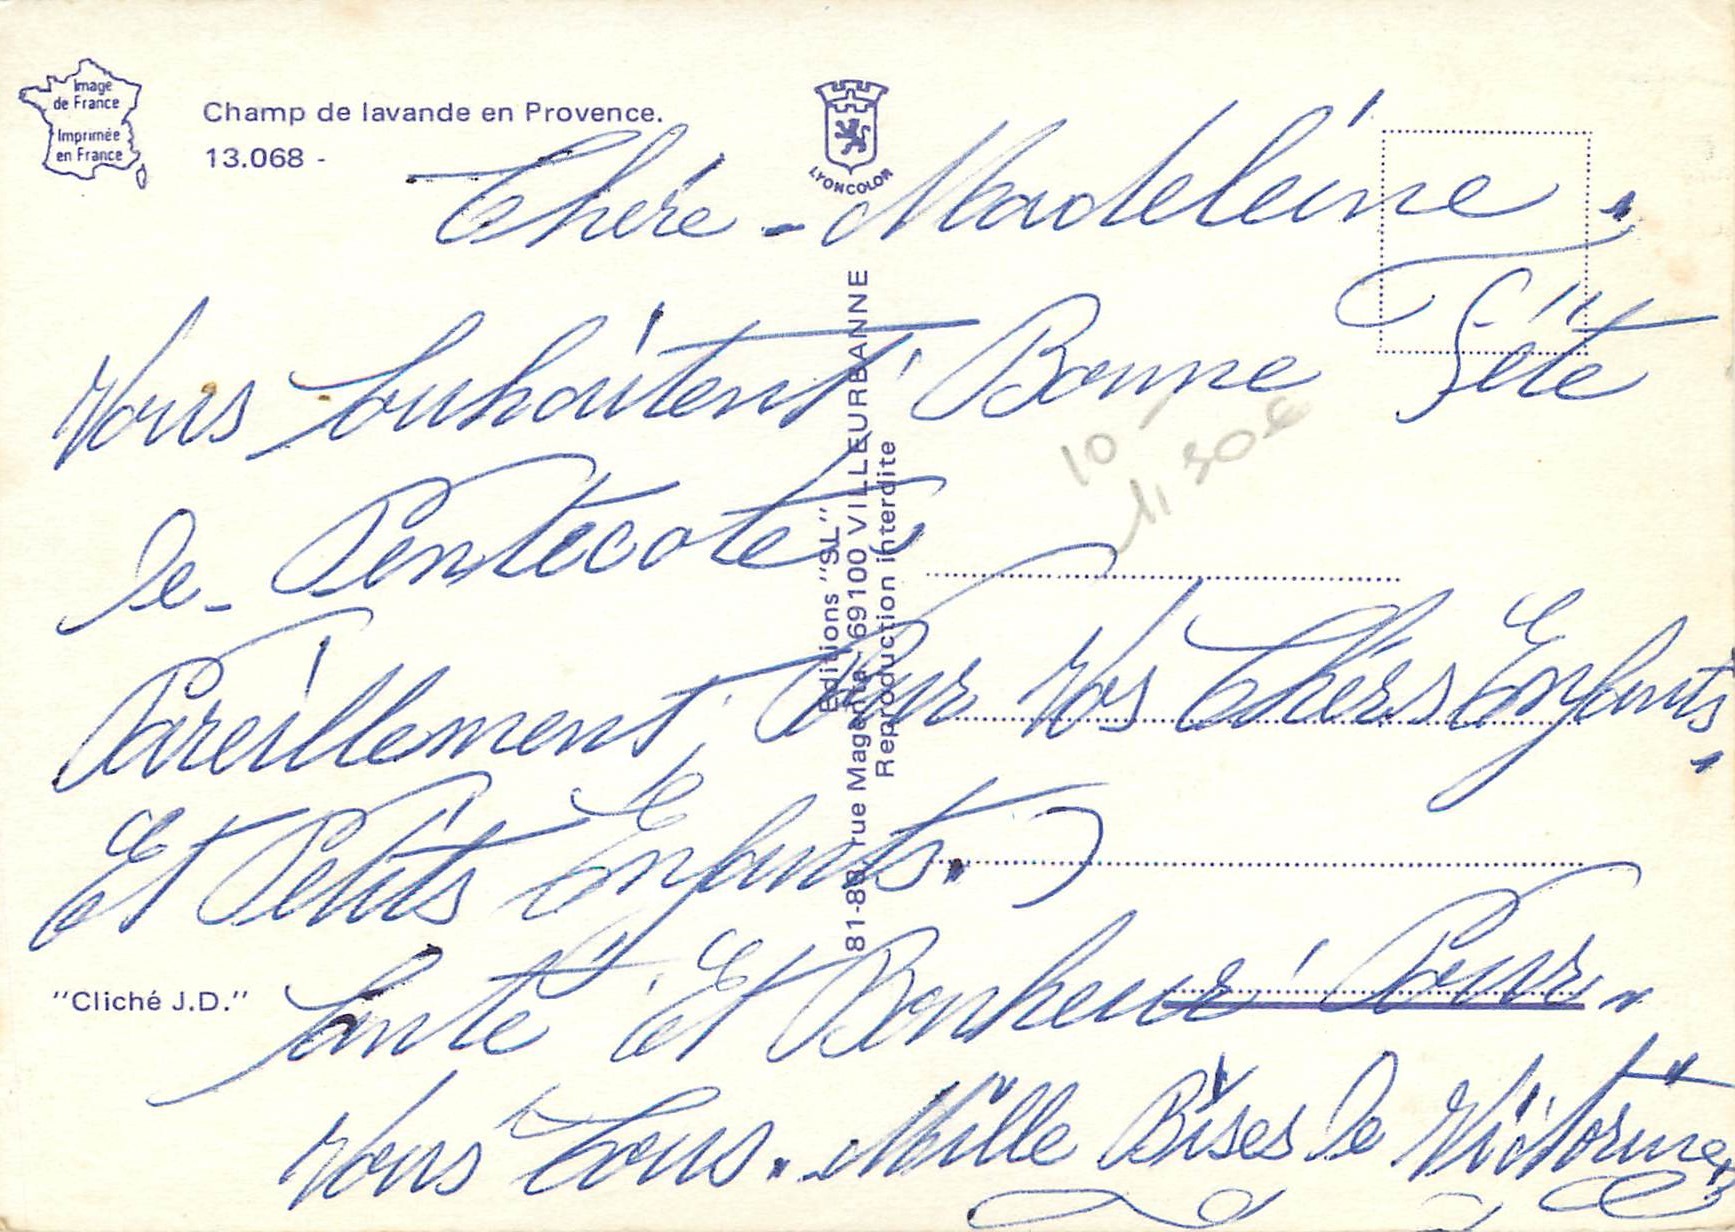 Image
de France
Imprimée
en France
Champ de lavande en Provence.
13.068 -
LYONCOLOR
Chère - Madeleine.
Vous Souhaitent Bonne Fête
de - Pentecote
Pareillement, Pour Vos Chèrs Enfants,
Et Petits Enfants.
Santé Et Bonheur Pour
Vous Tous. Mille Bises de Victorine
"Cliché J.D."
Editions "SL"
81-83 rue Magenta - 69100 VILLEURBANNE
Reproduction interdite
10